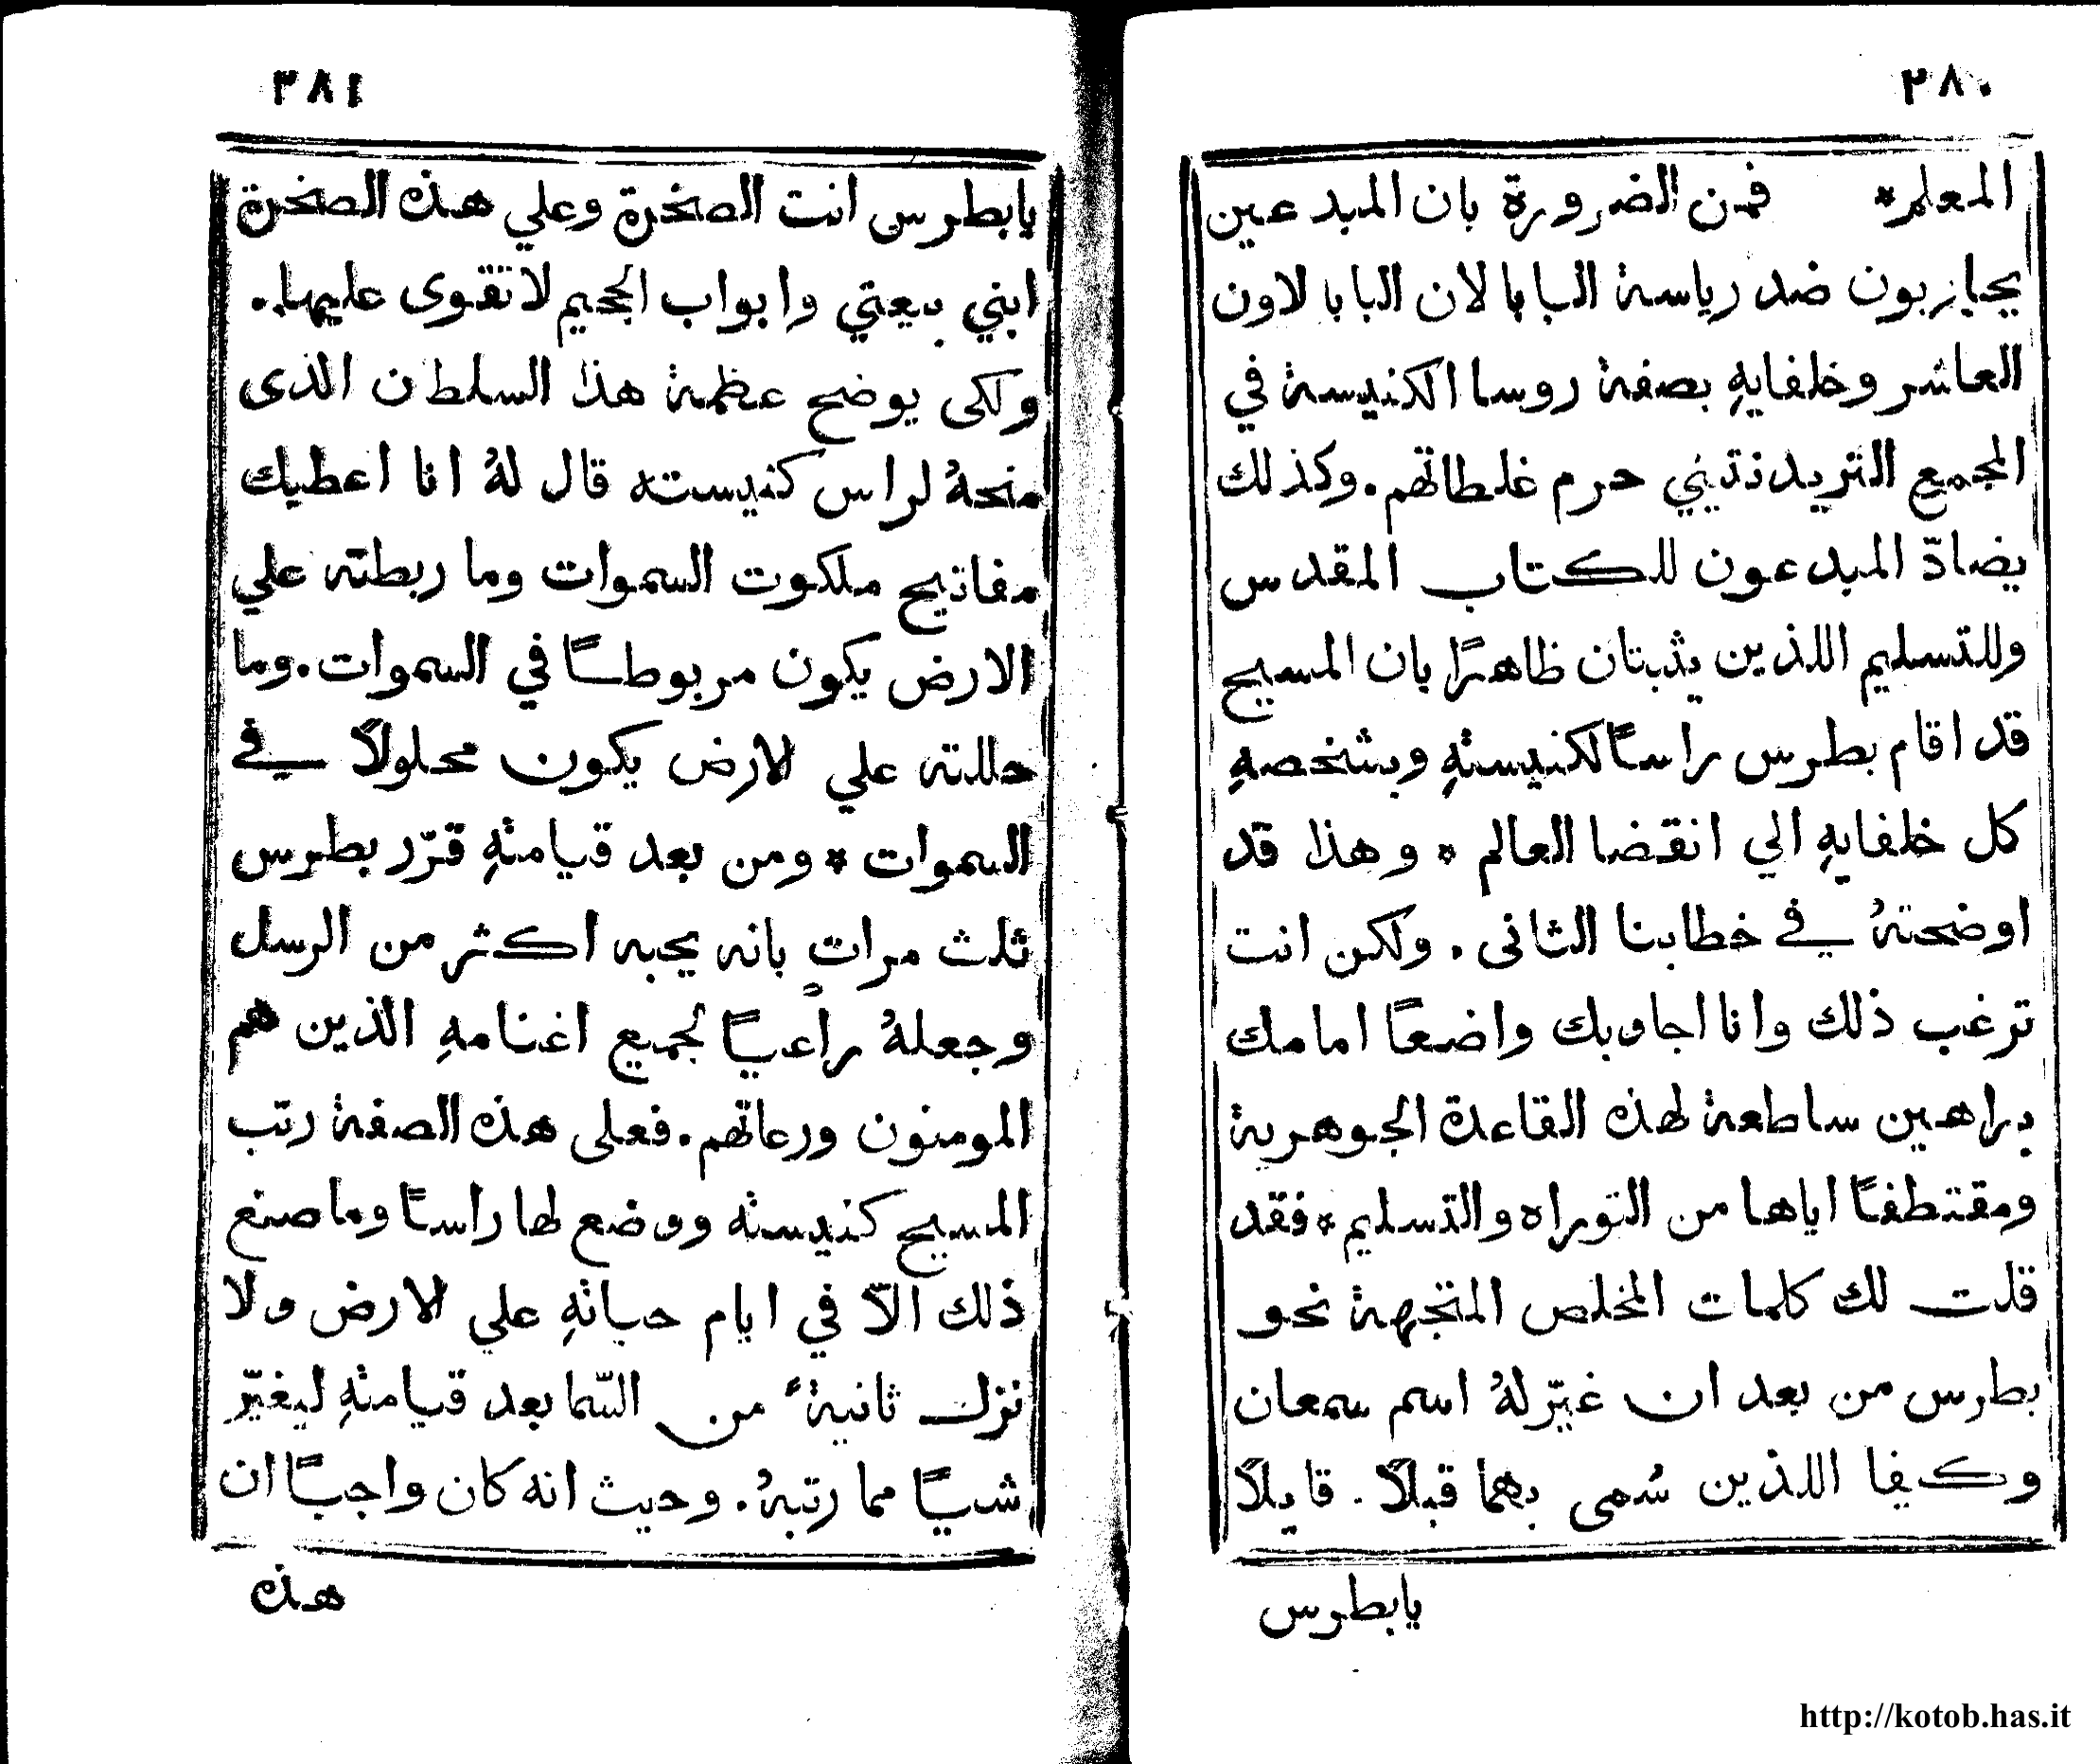 ٢٨٠
المعلم* فمن الضرورة بان المبدعين
يحازبون ضد رياسة البابا لان البابا لاون
العاشر وخلفايهِ بصفة روسا الكنيسة في
المجمع التريدنتيني حرم غلطاتهم. وكذلك
يضادّ المبدعون للكتاب المقدس
وللتسليم اللذين يثبتان ظاهرًا بان المسيح
قد اقام بطرس راسًا لكنيستهِ وبشخصهِ
كل خلفايهِ الي انقضا العالم * وهذا قد
اوضحتهُ في خطابنا الثانى. ولكن انت
ترغب ذلك وانا اجاوبك واضعًا امامك
براهين ساطعة لهذه القاعدة الجوهرية
ومقتطفًا اياها من التوراه والتسليم * فقد
قلت لك كلمات المخلص المتجهة نحو
بطرس من بعد ان غيّر لهُ اسم سمعان
وكيفا اللذين سُمى بهما قبلاً. قايلاً
يابطرس
٢٨١
يابطرس انت الصخرة وعلي هذه الصخرة
ابني بيعتي وابواب الجحيم لا تقوى عليها.
ولكى يوضح عظمة هذا السلطان الذى
منحهُ لراس كنيسته قال لهُ انا اعطيك
مفاتيح ملكوت السموات وما ربطته علي
الارض يكون مربوطًا في السموات. وما
حللته علي الارض يكون محلولاً في
السموات * ومن بعد قيامتهِ قرّر بطرس
ثلث مراتٍ بانه يحبه اكثر من الرسل
وجعلهُ راعيًا لجميع اغنامهِ الذين هم
المومنون ورعاتهم. فعلى هذه الصفة رتب
المسيح كنيسته ووضع لها راسًا وما صنع
ذلك الاّ في ايام حياتهِ علي الارض ولا
نزل ثانيةً من السّما بعد قيامتهِ ليغيّر
شيًا مما رتبهُ. وحيث انه كان واجبًا ان
هذه
http://kotob.has.it